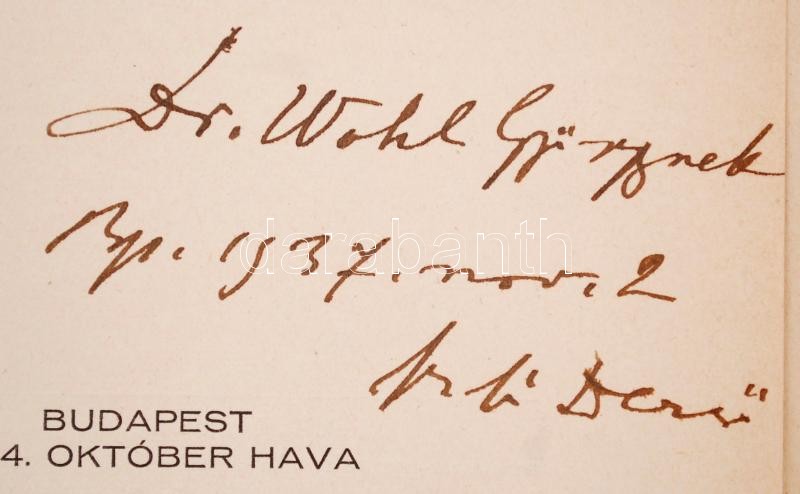 Dr. Wohl Györgynek
Bp. 1937. nov. 2
darabanth
Dezső
BUDAPEST
4. OKTÓBER HAVA